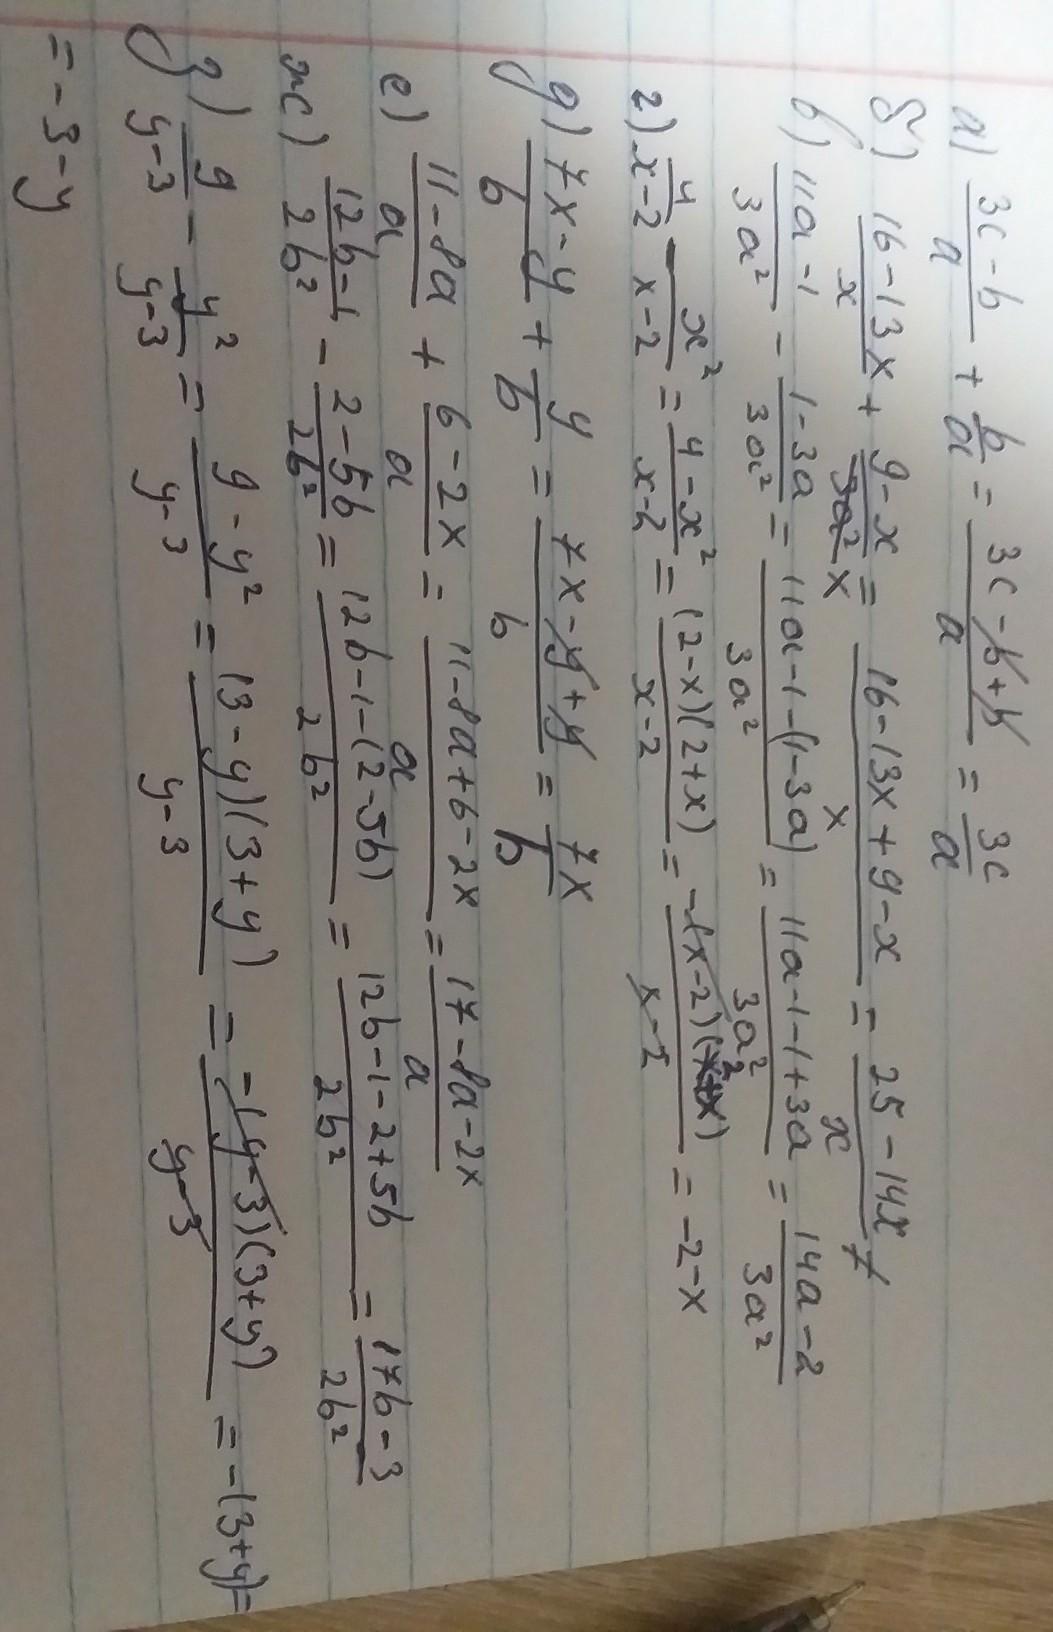 а) (3c-b)/a + b/a = (3c-b+b)/a = 3c/a
б) (16-13x)/x + (9-x)/x = (16-13x+9-x)/x = (25-14x)/x
в) (11a-1)/3a² - (1-3a)/3a² = (11a-1-(1-3a))/3a² = (11a-1-1+3a)/3a² = (14a-2)/3a²
г) 4/(x-2) - x²/(x-2) = (4-x²)/(x-2) = (2-x)(2+x)/(x-2) = -(x-2)(2+x)/(x-2) = -2-x
д) (7x-y)/b + y/b = (7x-y+y)/b = 7x/b
е) (11-8a)/a + (6-2x)/a = (11-8a+6-2x)/a = (17-8a-2x)/a
ж) (12b-1)/2b² - (2-5b)/2b² = (12b-1-(2-5b))/2b² = (12b-1-2+5b)/2b² = (17b-3)/2b²
з) 9/(y-3) - y²/(y-3) = (9-y²)/(y-3) = (3-y)(3+y)/(y-3) = -(y-3)(3+y)/(y-3) = -(3+y) =
= -3-y